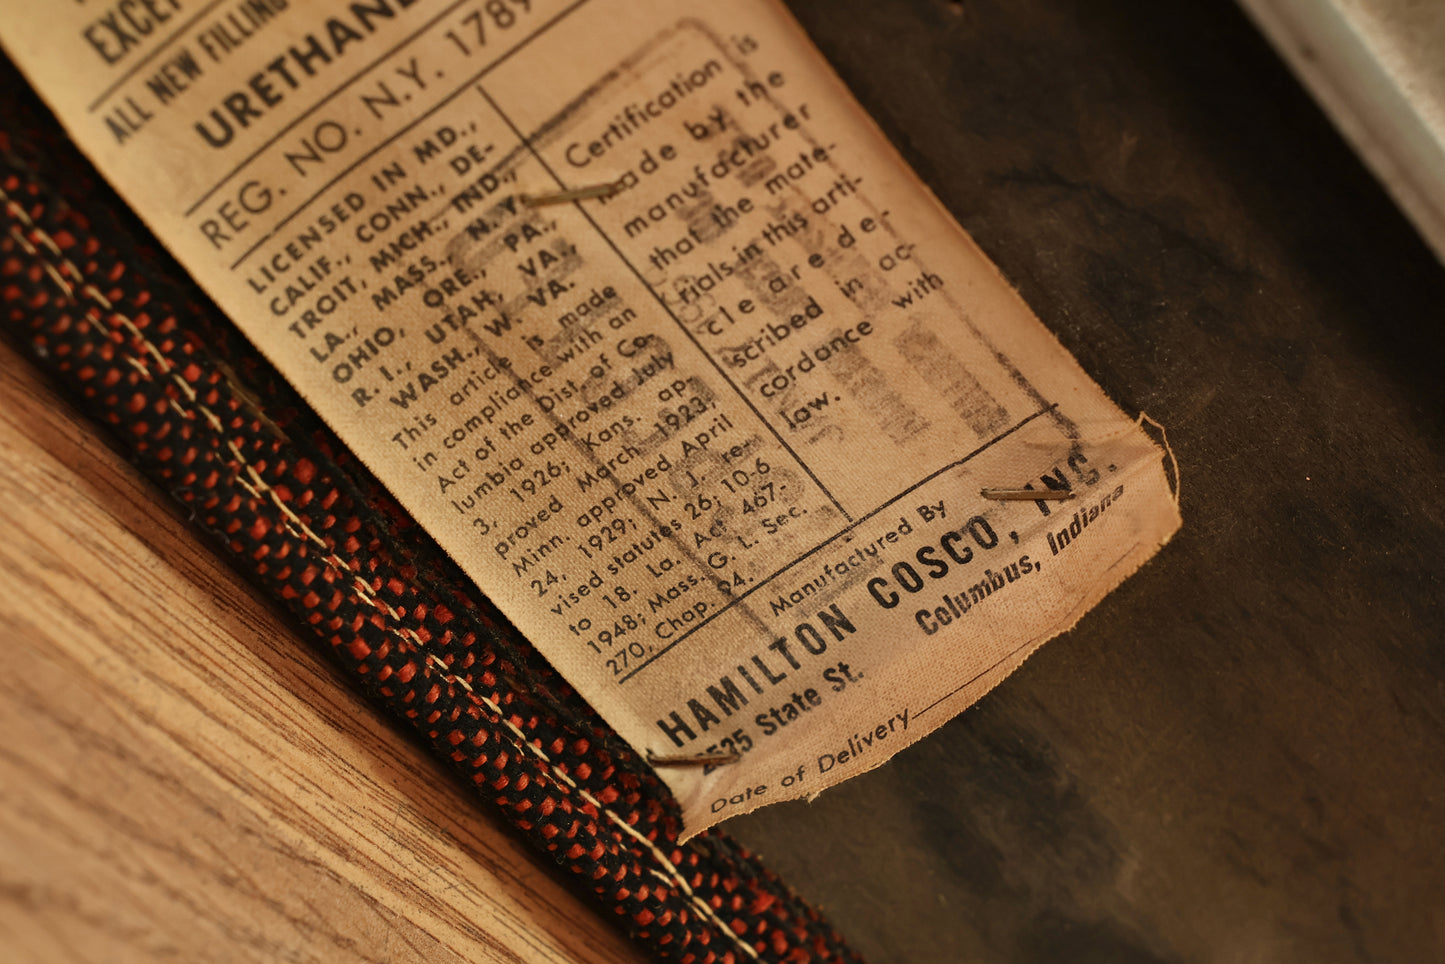 EXCEP
ALL NEW FILLING
URETHANE
REG. NO. N.Y. 1789
LICENSED IN MD.,
CALIF., CONN., DE-
TROIT, MICH., IND.,
LA., MASS., N.Y.,
OHIO, ORE., PA.,
R. I., UTAH, VA.,
WASH., W. VA.
This article is made
in compliance with an
Act of the Dist. of Co-
lumbia approved July
3, 1926; Kans. ap-
proved March 1923;
Minn. approved April
24, 1929; N. J. re-
vised statutes 26; 10-6
to 18. La. Act 467-
1948; Mass. G. L. Sec.
270, Chap. 94.
Certification is
made by the
manufacturer
that the mate-
rials in this arti-
cle are de-
scribed in ac-
cordance with
law.
Manufactured By
HAMILTON COSCO, INC.
2525 State St. Columbus, Indiana
Date of Delivery